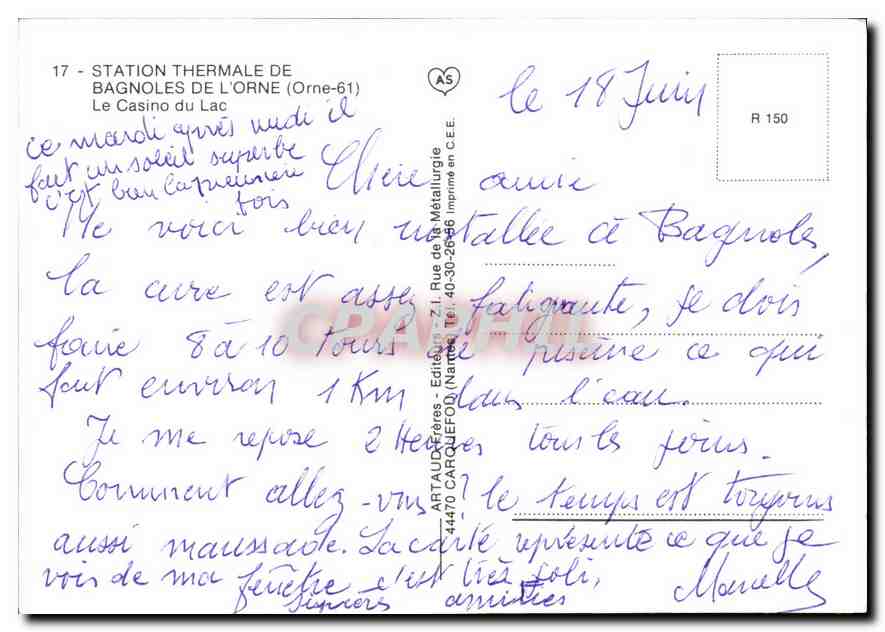 17 - STATION THERMALE DE
BAGNOLES DE L'ORNE (Orne-61)
Le Casino du Lac
AS
R 150
ARTAUD Frères - Editeurs - Z.I. Rue de la Métallurgie
44470 CARQUEFOU (Nantes) Tél. 40-30-26-86 Imprimé en C.E.E.
CPARHIL
le 18 Juin
ce mardi après midi il
fait un soleil superbe
c'est bien la première
fois
Chère amie
Me voici bien installée à Bagnoles,
la cure est assez fatigante, je dois
faire 8 à 10 tours de piscine ce qui
fait environ 1 Km dans l'eau.
Je me repose 2 Heures tous les jours.
Comment allez-vous ? le temps est toujours
aussi maussade. La carte représente ce que je
vois de ma fenêtre c'est très joli,
sincères amitiés
Marcelle